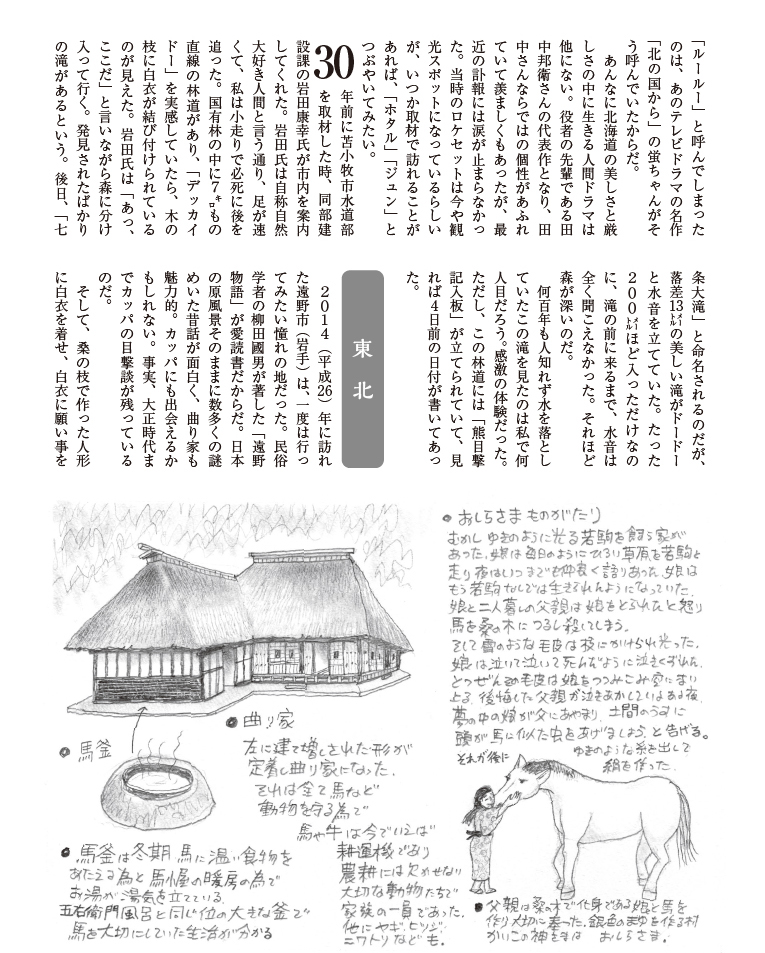 「ルールー」と呼んでしまった
のは、あのテレビドラマの名作
「北の国から」の蛍ちゃんがそ
う呼んでいたからだ。
あんなに北海道の美しさと厳
しさの中に生きる人間ドラマは
他にない。役者の先輩である田
中邦衛さんの代表作となり、田
中さんならではの個性があふれ
ていて羨ましくもあったが、最
近の訃報には涙が止まらなかっ
た。当時のロケセットは今や観
光スポットになっているらしい
が、いつか取材で訪れることが
あれば、「ホタル」「ジュン」と
つぶやいてみたい。
30年前に苫小牧市水道部
を取材した時、同部建
設課の岩田康幸氏が市内を案内
してくれた。岩田氏は自称自然
大好き人間と言う通り、足が速
くて、私は小走りで必死に後を
追った。国有林の中に7㌔もの
直線の林道があり、「デッカイ
ドー」を実感していたら、木の
枝に白衣が結び付けられている
のが見えた。岩田氏は「あっ、
ここだ」と言いながら森に分け
入って行く。発見されたばかり
の滝があるという。後日、「七
条大滝」と命名されるのだが、
落差13㍍の美しい滝がドードー
と水音を立てていた。たった
200㍍ほど入っただけなの
に、滝の前に来るまで、水音は
全く聞こえなかった。それほど
森が深いのだ。
何百年も人知れず水を落とし
ていたこの滝を見たのは私で何
人目だろう。感激の体験だった。
ただし、この林道には「熊目撃
記入板」が立てられていて、見
れば4日前の日付が書いてあっ
た。
東北
2014（平成26）年に訪れ
た遠野市（岩手）は、一度は行っ
てみたい憧れの地だった。民俗
学者の柳田國男が著した「遠野
物語」が愛読書だからだ。日本
の原風景そのままに数多くの謎
めいた昔話が面白く、曲り家も
魅力的。カッパにも出会えるか
もしれない。事実、大正時代ま
でカッパの目撃談が残っている
のだ。
そして、桑の枝で作った人形
に白衣を着せ、白衣に願い事を
● おしらさまものがたり
むかし ゆきのように光る若駒を飼う家が
あった。娘は毎日のようにひろい草原を若駒と
走り夜はいつまでも仲良く語りあった。娘は
もう若駒なしでは生きられんようになっていた。
娘と二人暮しの父親は娘をとられたと怒り
馬を桑の木につるし殺してしまう。
そして雪のような毛皮は枝にかけられ光った。
娘は泣いて泣いて死んだように泣きくずれた。
とつぜんその毛皮は娘をつつみこみ空にまい
上る。後悔した父親が泣きあかしていたある夜、
夢の中の娘が父にあやまり、土間のうすに
頭が馬に似た虫をあげましょう、と告げる。
それが後に ゆきのような糸を出して
絹を作った。
● 曲り家
左に建て増しされた形が
定着し曲り家になった。
それは全て馬など
動物を守る為で
馬や牛は今でいえば
耕運機であり
農耕には欠かせない
大切な動物たちで
家族の一員であった。
他にヤギ、ヒツジ、
ニワトリなども。
● 馬釜
● 馬釜は冬期 馬に温い食物を
あたえる為と馬小屋の暖房の為で
お湯が湯気を立てている。
五右衛門風呂と同じ位の大きな釜で
馬を大切にしていた生活が分かる
● 父親は桑の木で化身である娘と馬を
作り大切に奉った。銀色のまゆを作る村
かいこの神さまは おしらさま。